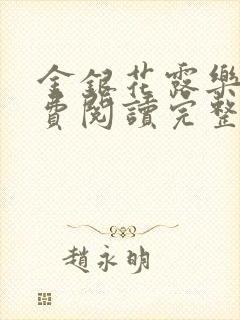 金銀花露樂
費閱讀完整
趙永明